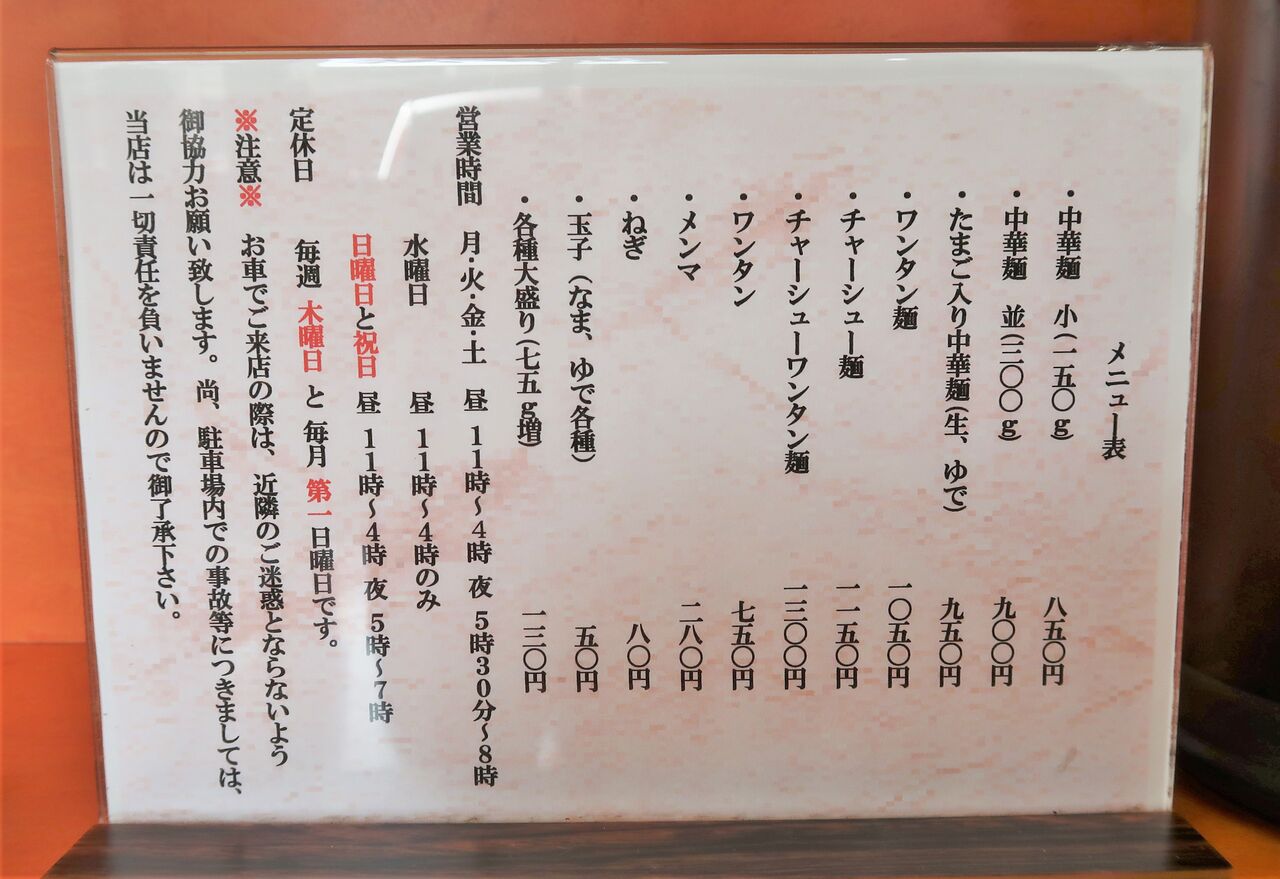 メニュー表
・中華麺 小(一五〇g) 八五〇円
・中華麺 並(三〇〇g) 九〇〇円
・たまご入り中華麺(生、ゆで) 九五〇円
・ワンタン麺 一〇五〇円
・チャーシュー麺 一一五〇円
・チャーシューワンタン麺 一三〇〇円
・ワンタン 七五〇円
・メンマ 二八〇円
・ねぎ 八〇円
・玉子(なま、ゆで各種) 五〇円
・各種大盛り(七五g増) 一三〇円
営業時間 月・火・金・土 昼 11時～4時 夜 5時30分～8時
水曜日 昼 11時～4時のみ
日曜日と祝日 昼 11時～4時 夜 5時～7時
定休日 毎週 木曜日 と 毎月 第一日曜日です。
※注意※ お車でご来店の際は、近隣のご迷惑とならないよう
御協力お願い致します。尚、駐車場内での事故等につきましては、
当店は一切責任を負いませんので御了承下さい。